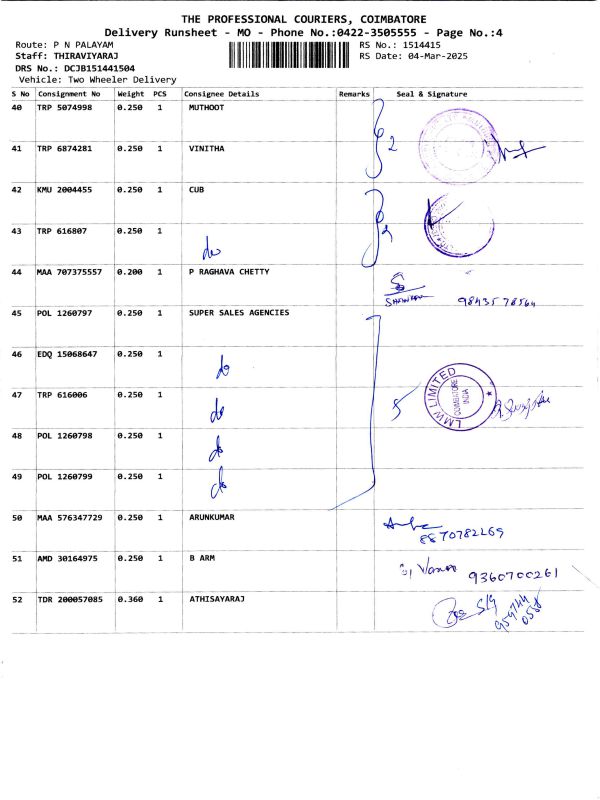 THE PROFESSIONAL COURIERS, COIMBATORE
Delivery Runsheet - MO - Phone No.:0422-3505555 - Page No.:4
Route: P N PALAYAM
RS No.: 1514415
Staff: THIRAVIYARAJ
RS Date: 04-Mar-2025
DRS No.: DCJB151441504
Vehicle: Two Wheeler Delivery
S No Consignment No Weight PCS Consignee Details Remarks Seal & Signature
40 TRP 5074998 0.250 1 MUTHOOT
2
41 TRP 6874281 0.250 1 VINITHA
42 KMU 2004455 0.250 1 CUB
43 TRP 616807 0.250 1 do
44 MAA 707375557 0.200 1 P RAGHAVA CHETTY
9843578564
45 POL 1260797 0.250 1 SUPER SALES AGENCIES
46 EDQ 15068647 0.250 1 do
47 TRP 616006 0.250 1 do
5
LMW LIMITED
COIMBATORE
INDIA
48 POL 1260798 0.250 1 do
49 POL 1260799 0.250 1 do
50 MAA 576347729 0.250 1 ARUNKUMAR
8870782269
51 AMD 30164975 0.250 1 B ARM
9360700261
52 TDR 200057085 0.360 1 ATHISAYARAJ